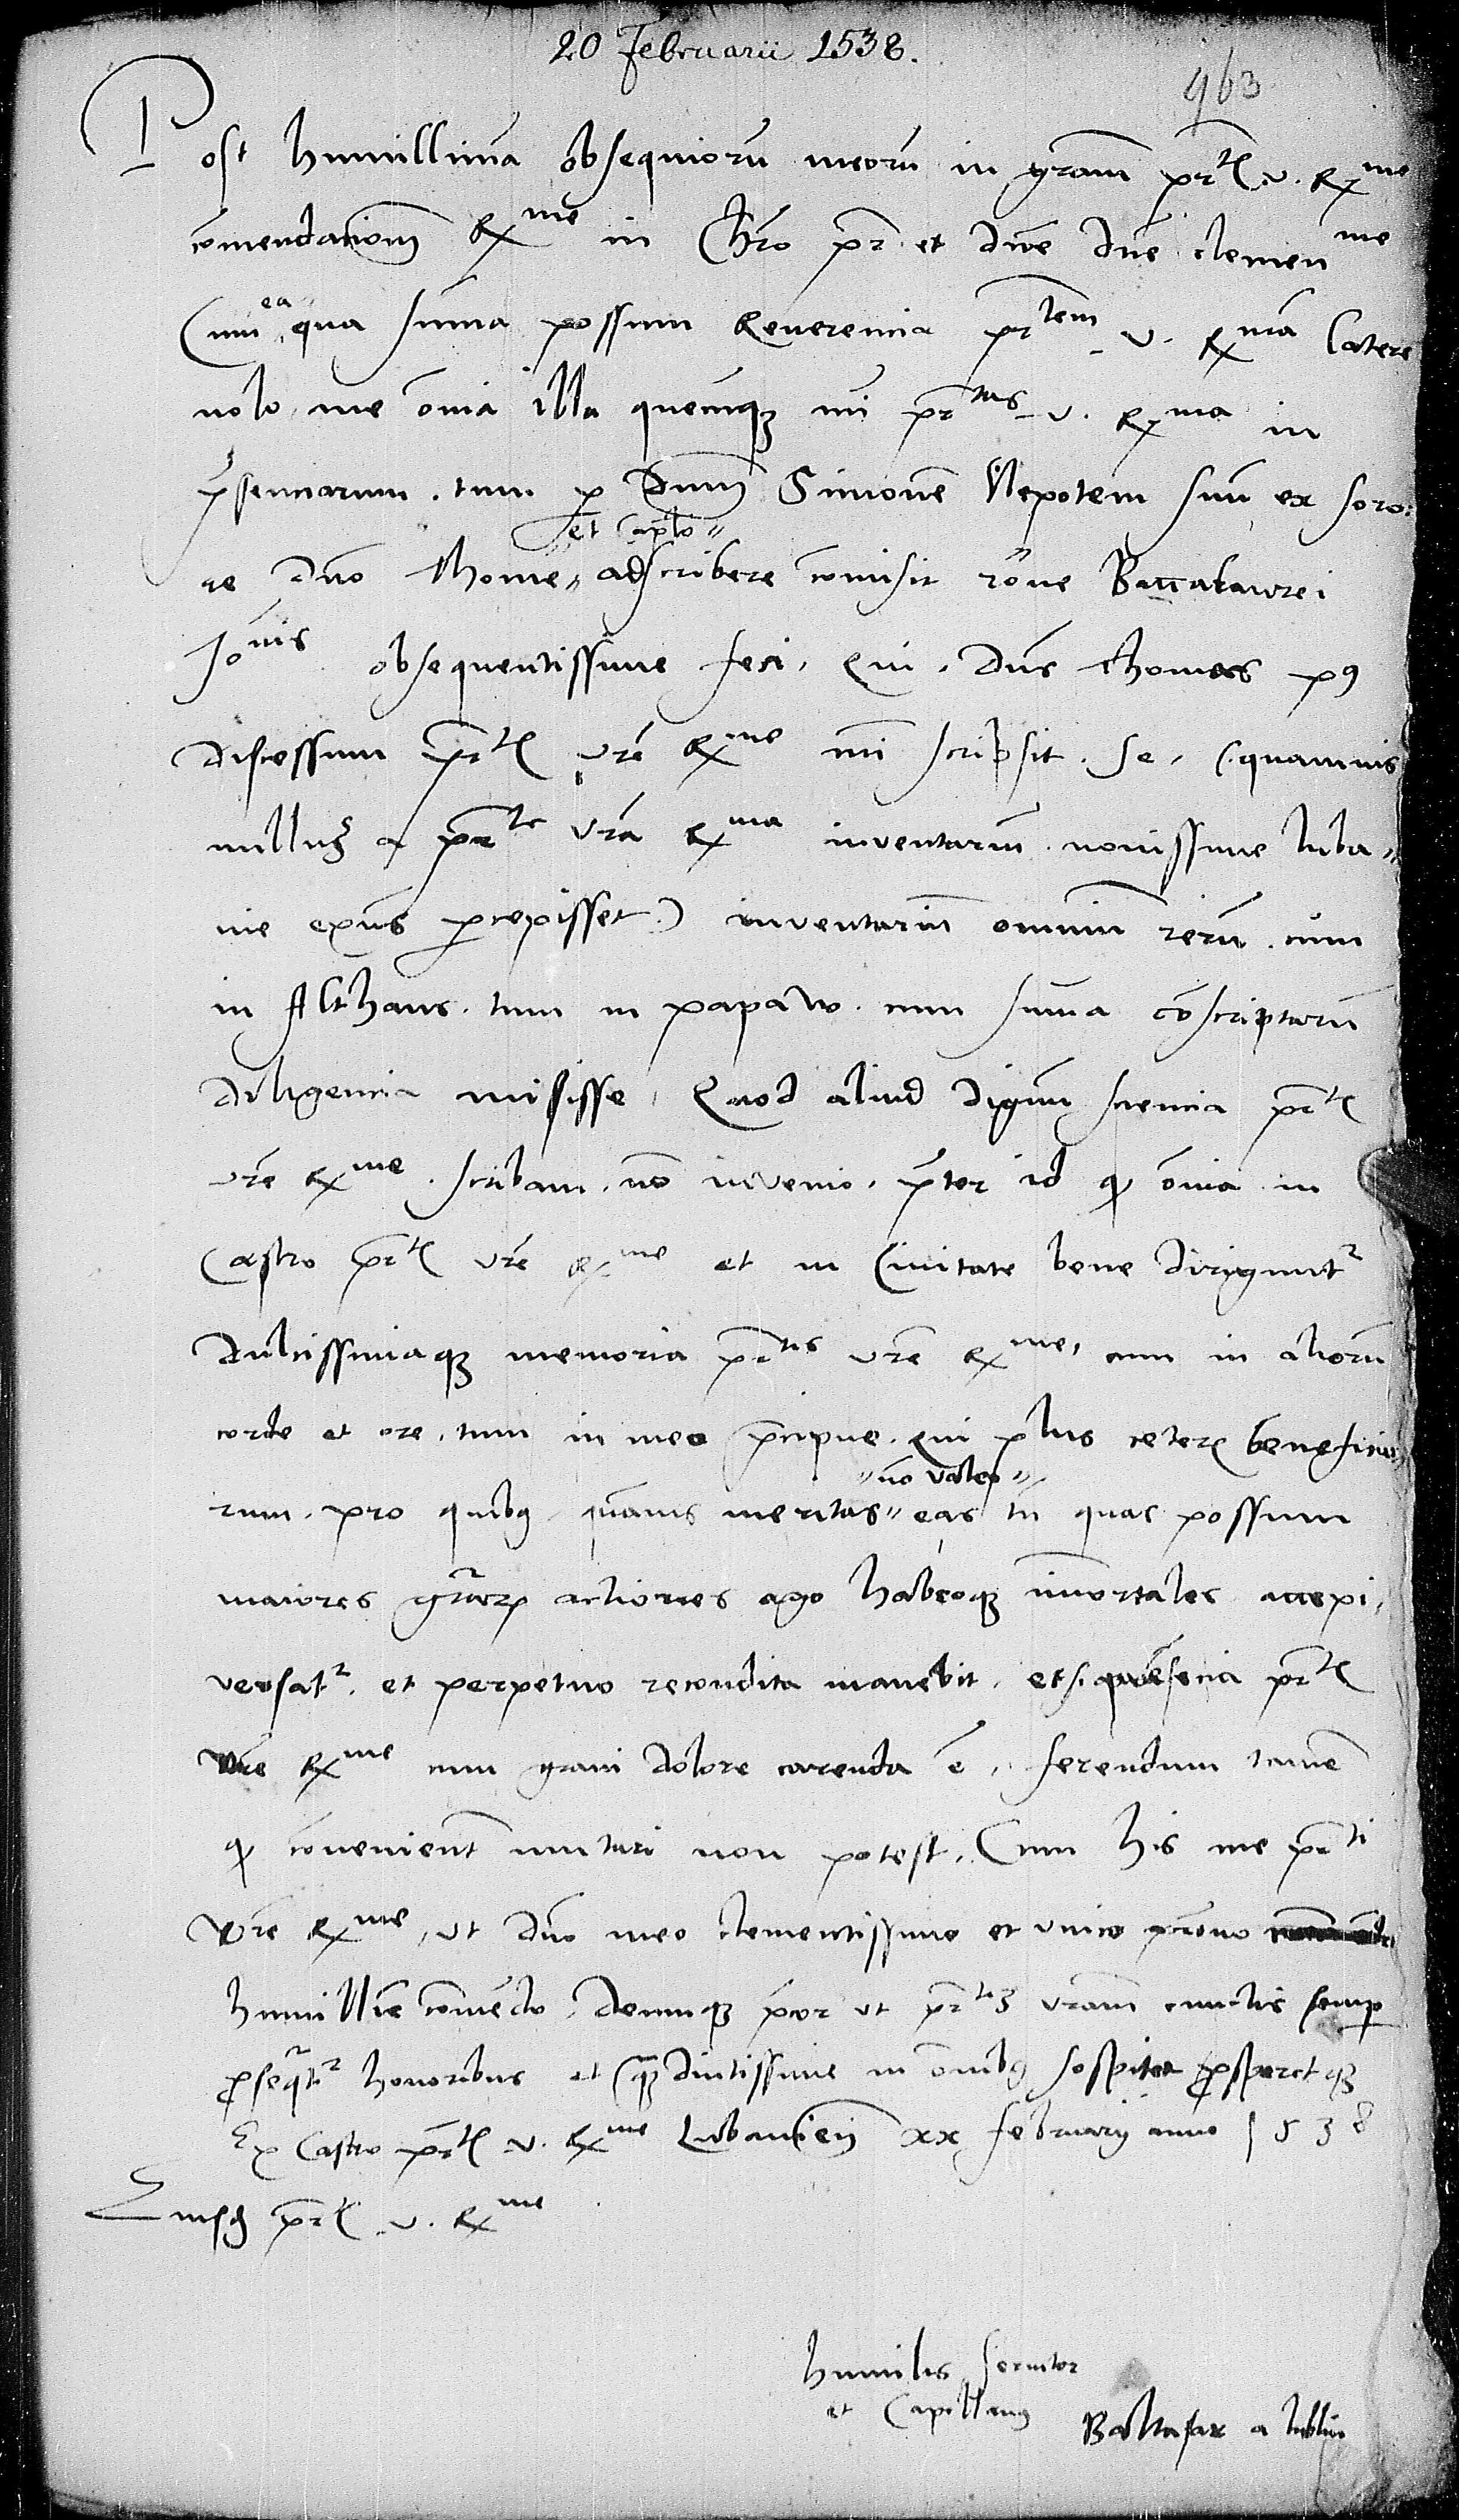 20 Februarii 1538.
963
Post humillimā obsequiorū meorū in gratiam prtis v. Rxme
comendationem Rxme in Chro pr et dne dne clemenme
Cum ea qua summa possum Reverencia prtem v. Rxmam latere
nolo me omnia illa quecumq mi prtas v. Rxma in
presenciarum tum per Dnum Simonem Nepotem suum ex soro-
re dno thome et caplo adscribere comisit rōne Baccalaurei
Jonis obsequentissime feci, Qui dns thomas post
discessum prtis vre Rxme mi scripsit se (quamvis
nullum a prte vra Rxma inventarium novissime luba-
vie exiens percepisset) inventarium omnium rerum cum
in Althaus tum in papaw cum summa conscriptum
diligencia misisse, Quod aliud dignum sciencia prtis
vre Rxme scribam, non invenio, preter id q omnia in
Castro prtis vre Rxme et in Civitate bene diriguntur
dulcissimaq memoria prtis vre Rxme, cum in aliorum
corde et ore, tum in meo precipue, qui plus ceteris beneficio-
rum, pro quibus quamvis meritas non valeo eas tn quas possum
maiores grarum actiones ago habeoq immortales accepi,
versatur, et perpetuo recondita manebit, etsi presencia prtis
vre Rxme cum gravi dolore carenda est, ferendum tamen
q convenient mutari non potest, Cum his me prti
Vre Rxme, ut dno meo clementissimo et unico prono
humillime comendo, deumq precor ut prtem vram cunctis semper
prosequatur honoribus et quam diutissime in omnibus sospitet prosperetq
Ex Castro prtis v. Rxme Lubavien xx februarij anno 1538
Eiusdem prtis v. Rxme
humilis servitor
et Capellanus
Baltasar a lublin